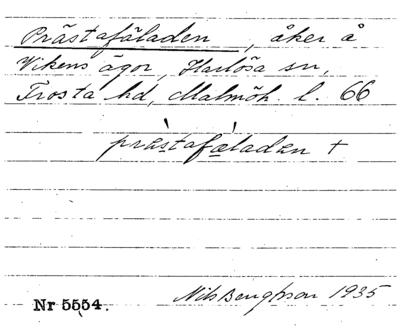 Prästafäladen, åker å
Vikens ägor, Harlösa sn,
Frosta hd, Malmöh. l. 66
prästafäladen +
Nr 5554.
Nils Bengtsson 1935